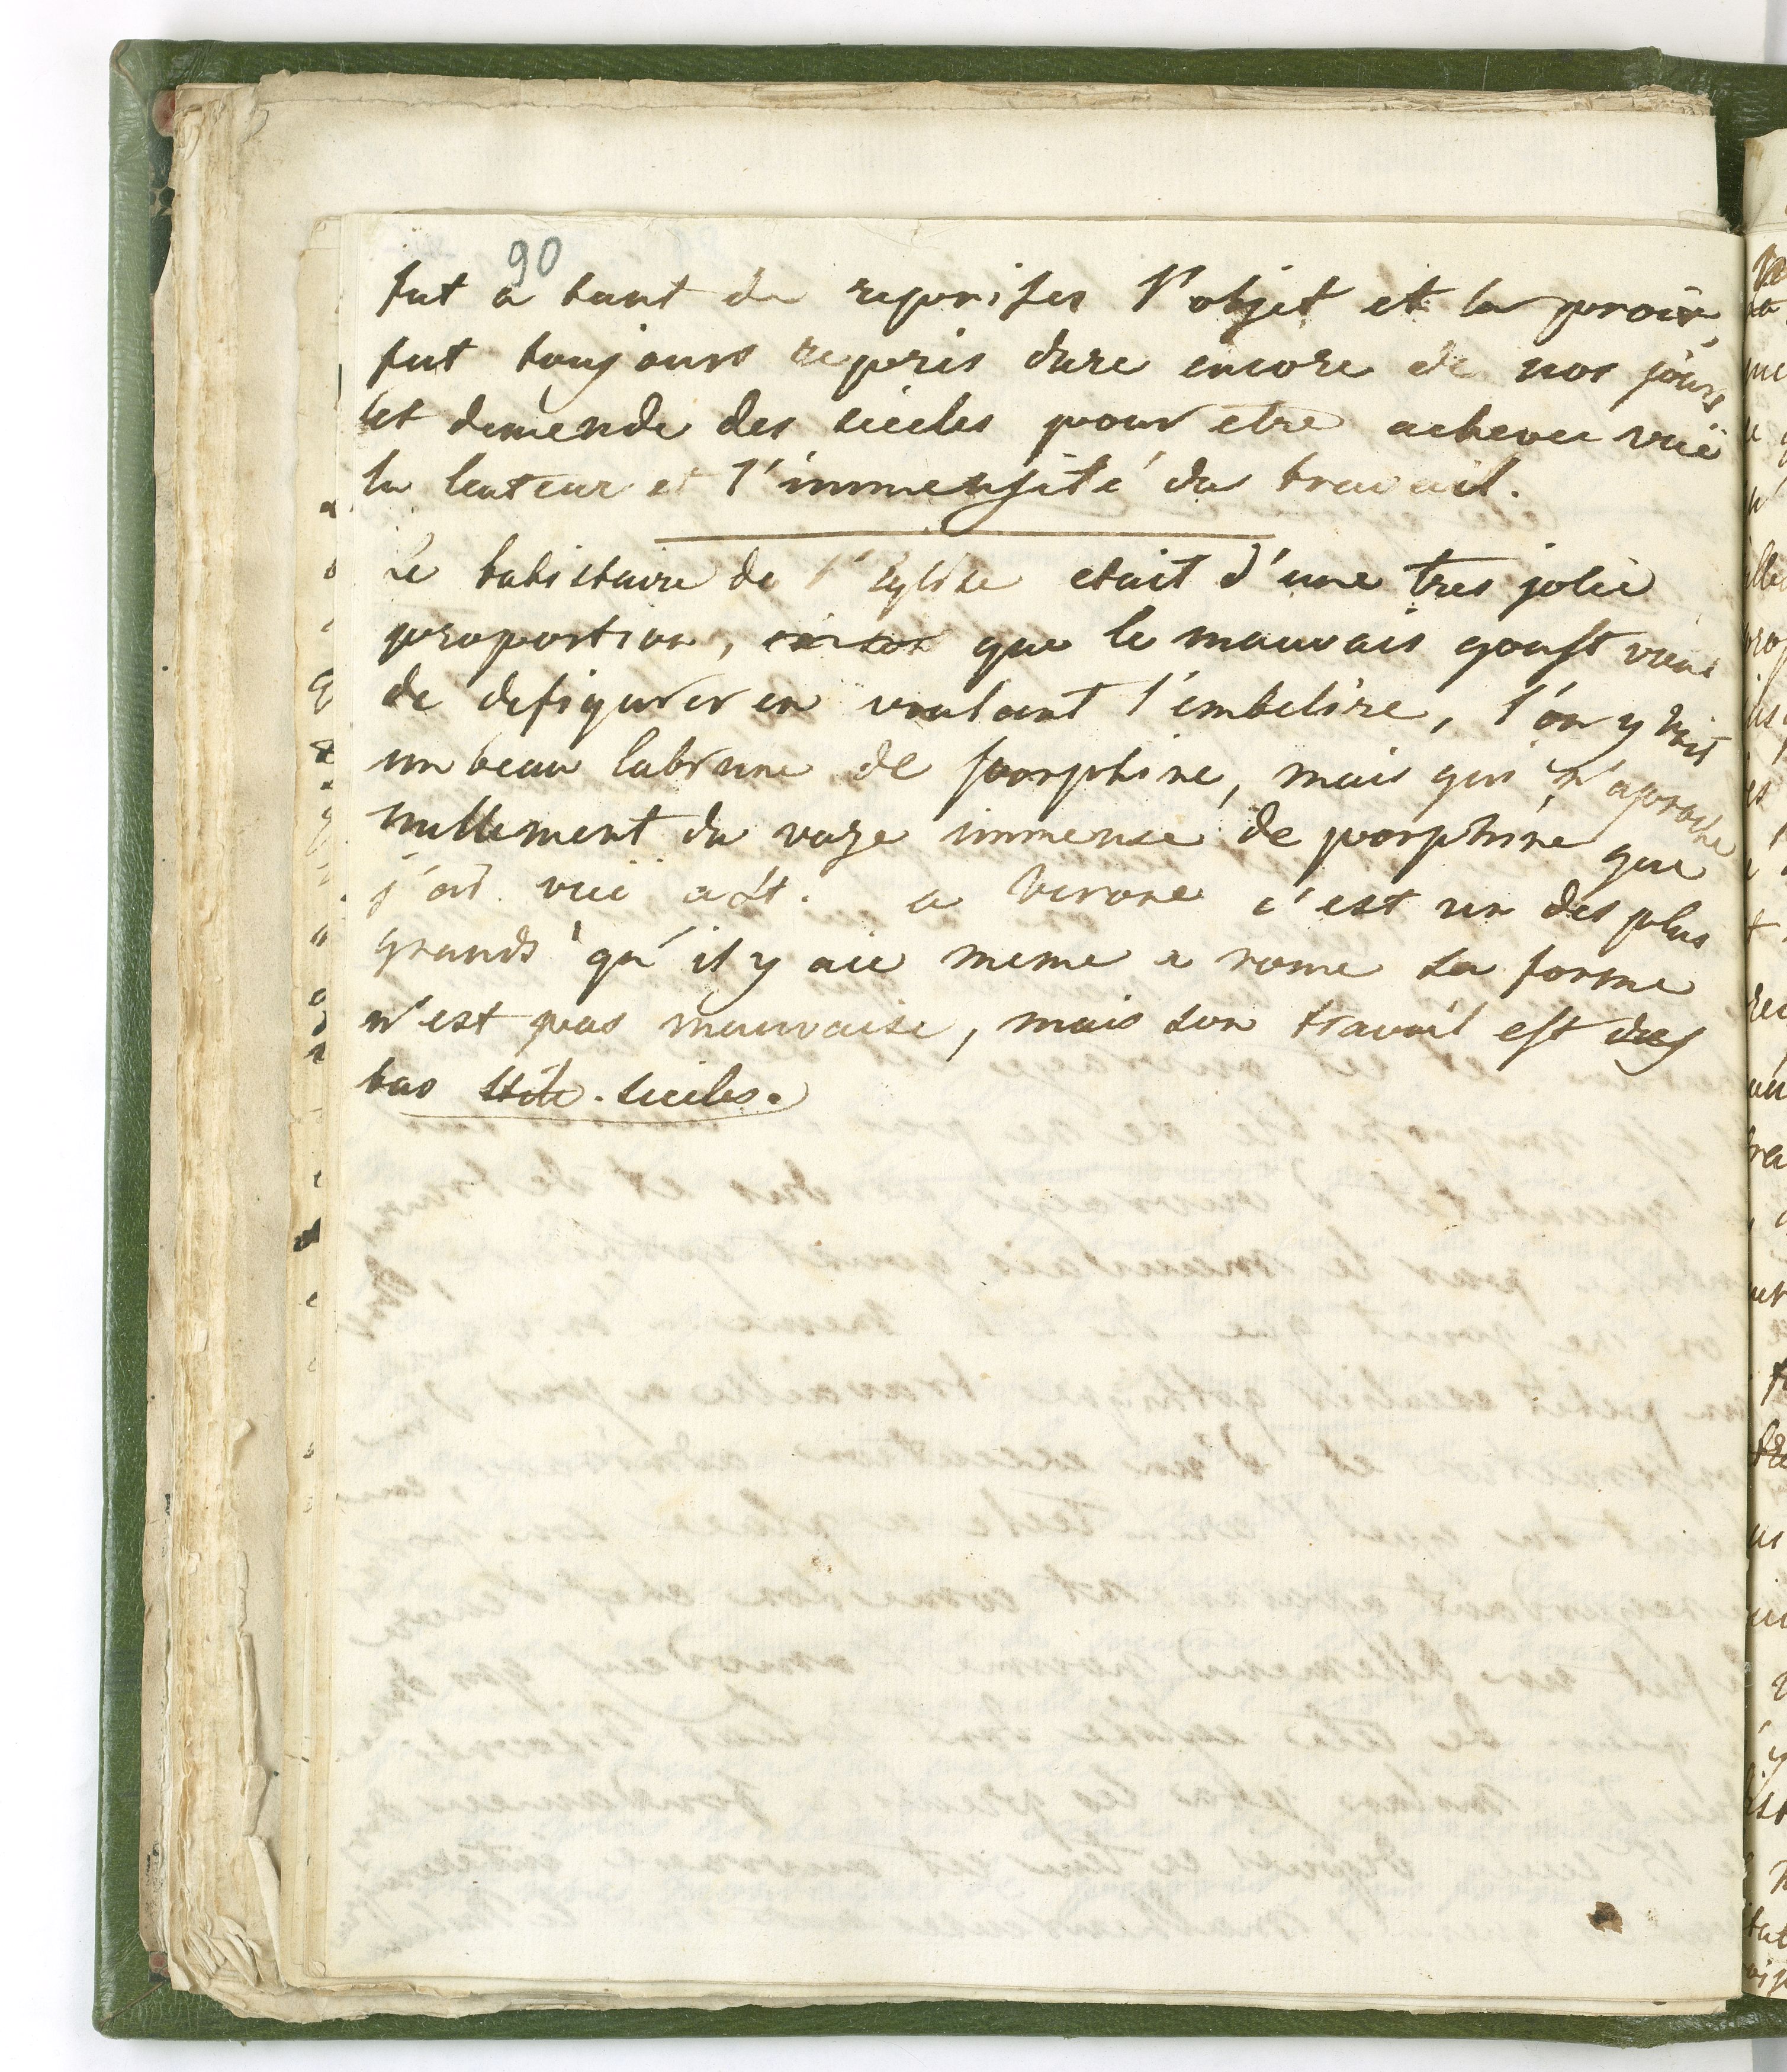 90
fut a tant de reprises l'objet et la proie,
fut toujours repris dure encore de nos jours
et demende des siecles pour etre achever vuë
la lenteur et l'immensité du travail.
Le batistaire de l'Eglise etait d'une tres jolie
proportion, que le mauvais goust vient
de defigurer en voulant l'embelire, l'on y voit
un beau labrum de porphire, mais qui n'aproche
nullement du vaze immense de porphire que
j'ai vuë a St. a Verone c'est un des plus
grands qu'il y aie meme a rome sa forme
n'est pas mauvaise, mais son travail est des
bas siecles.